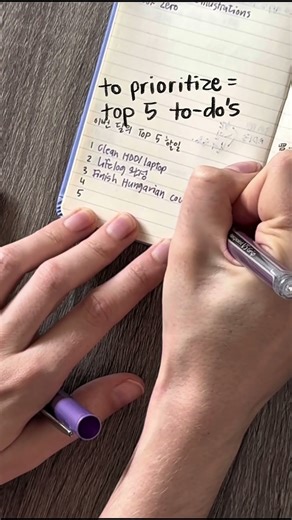 Zero
illustrations
to prioritize =
top 5 to-do's
이번 달의 Top 5 할일
1 Clean HDD/laptop
2 Lifelog 완성
3 Finish Hungarian cou
4
5